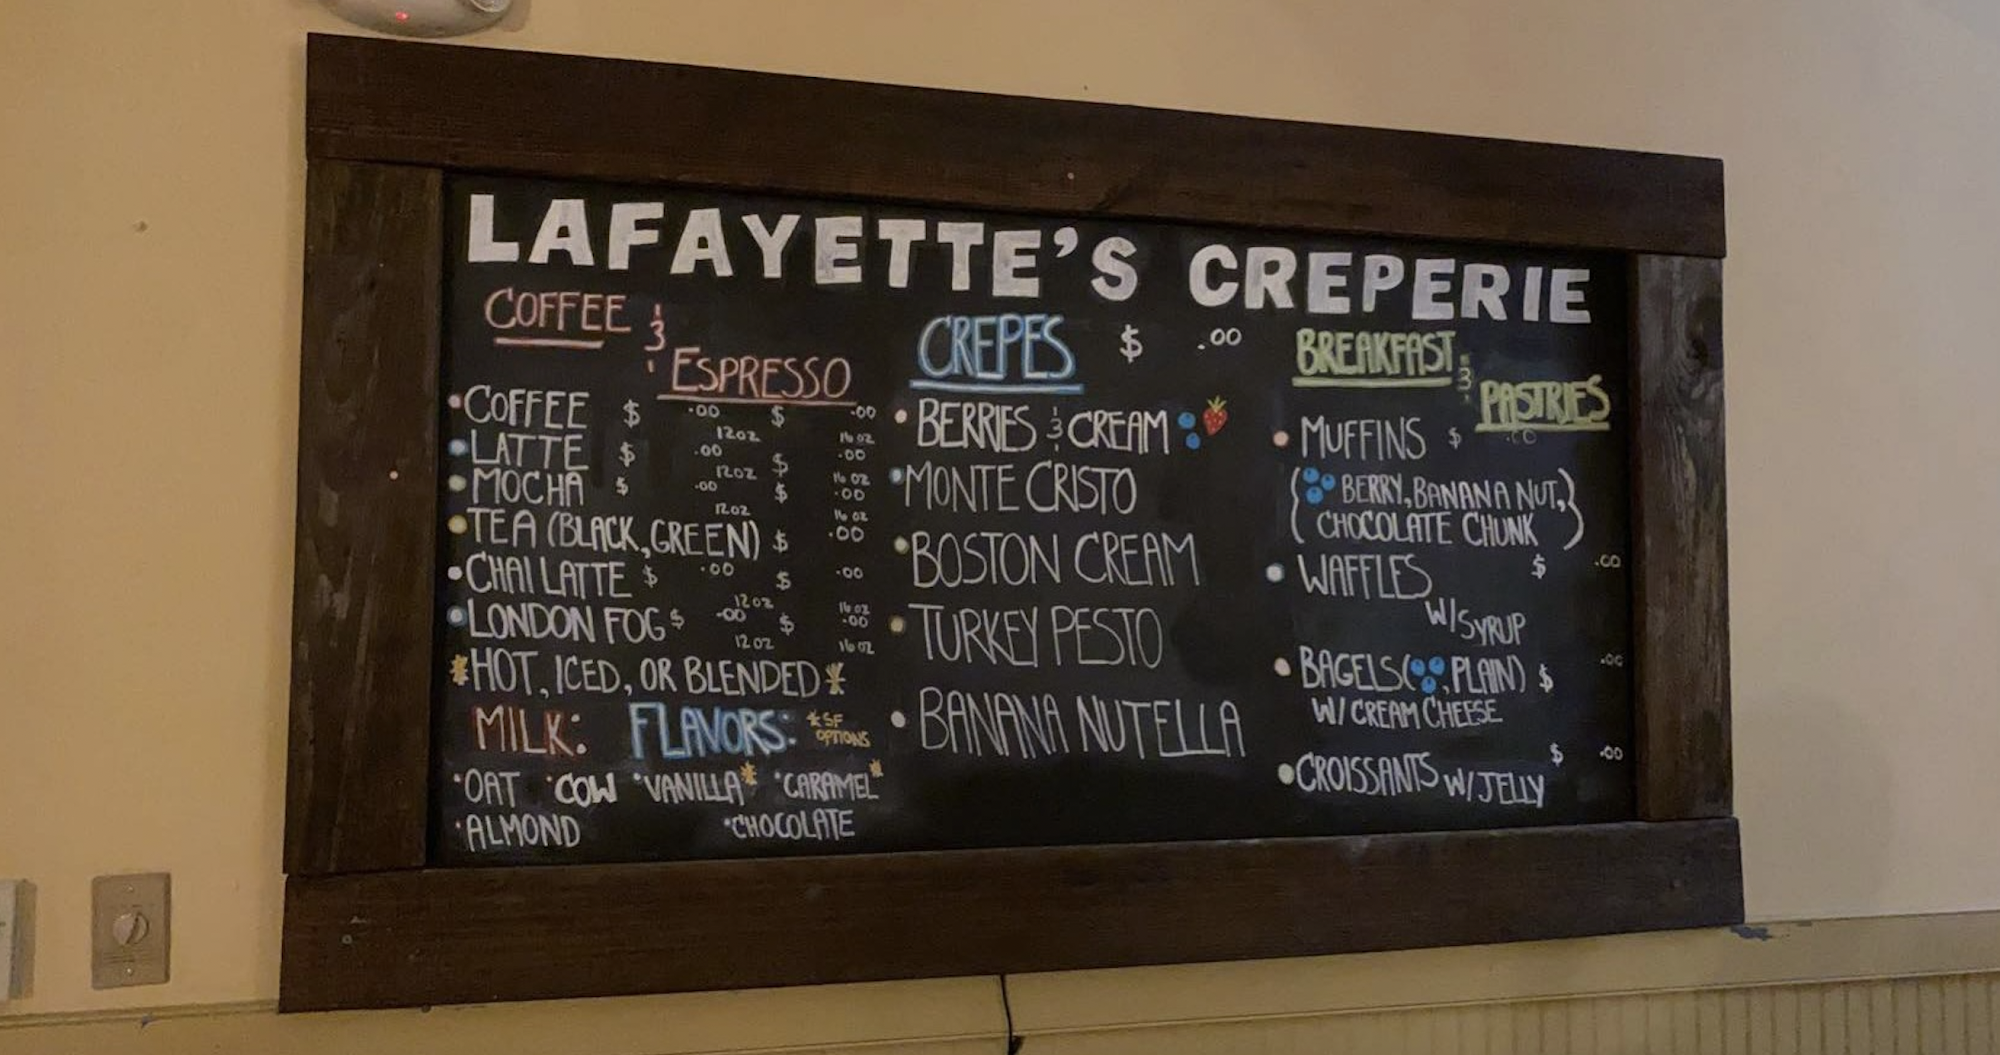 LAFAYETTE'S CREPERIE
COFFEE &
ESPRESSO
• COFFEE $ .00 $ .00
12oz 16oz
• LATTE $ .00 $ .00
12oz 16oz
• MOCHA $ .00 $ .00
12oz 16oz
• TEA (BLACK, GREEN) $ .00
• CHAI LATTE $ .00 $ .00
12oz 16oz
• LONDON FOG $ .00 $ .00
12oz 16oz
*HOT, ICED, OR BLENDED*
MILK:
• OAT • COW
• ALMOND
FLAVORS: *SF
OPTIONS
• VANILLA* • CARAMEL*
• CHOCOLATE
CREPES $ .00
• BERRIES & CREAM
• MONTE CRISTO
• BOSTON CREAM
• TURKEY PESTO
• BANANA NUTELLA
BREAKFAST &
PASTRIES
• MUFFINS $ .00
(BERRY, BANANA NUT,
CHOCOLATE CHUNK)
• WAFFLES $ .00
W/SYRUP
• BAGELS (, PLAIN) $ .00
W/ CREAM CHEESE
• CROISSANTS W/JELLY $ .00